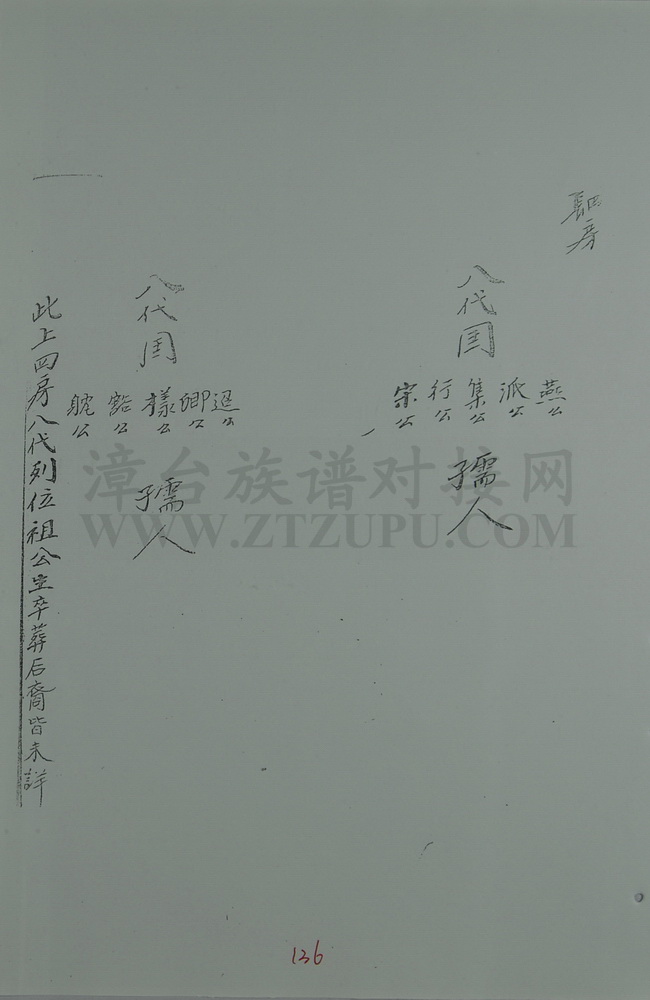 房
八代周
燕公
派公
集公
行公
宗公
孺人
八代周
公
卿公
樣公
豁公
公
孺人
此上四房八代列位祖公生卒葬后裔皆未詳
漳台族谱对接网
WWW.ZTZUPU.COM
136